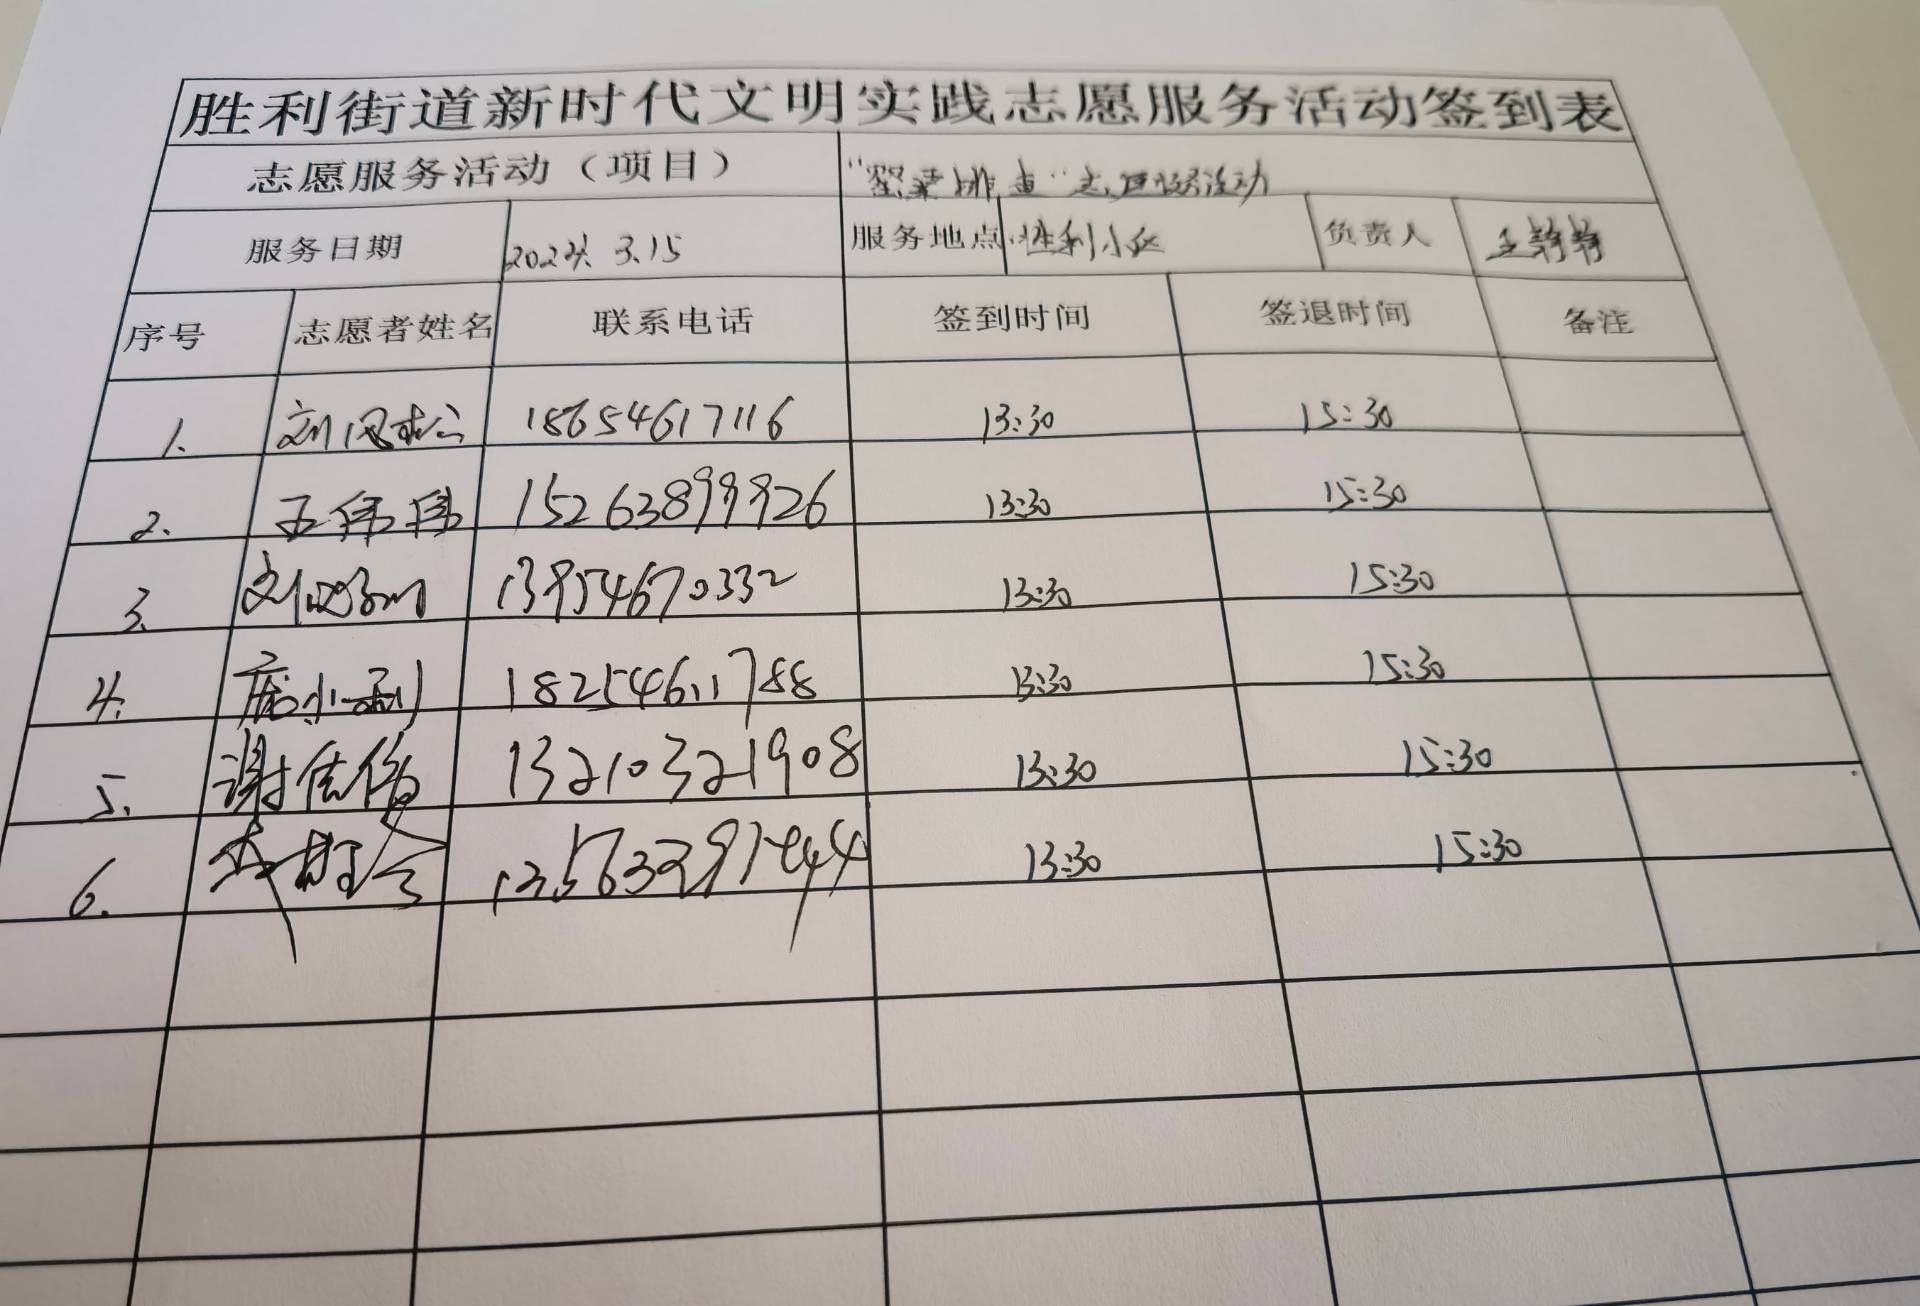 胜利街道新时代文明实践志愿服务活动签到表
志愿服务活动（项目） 排查"志愿服务活动
服务日期 2024. 3.15 服务地点 胜利小区 负责人 王静静
序号 志愿者姓名 联系电话 签到时间 签退时间 备注
1. 刘凤松 18654617116 13:30 15:30
2. 王伟伟 15263899926 13:30 15:30
3. 刘 13954670332 13:30 15:30
4. 庞小利 18254611788 13:30 15:30
5. 谢佳伟 13210321908 13:30 15:30
6. 李 13:30 15:30